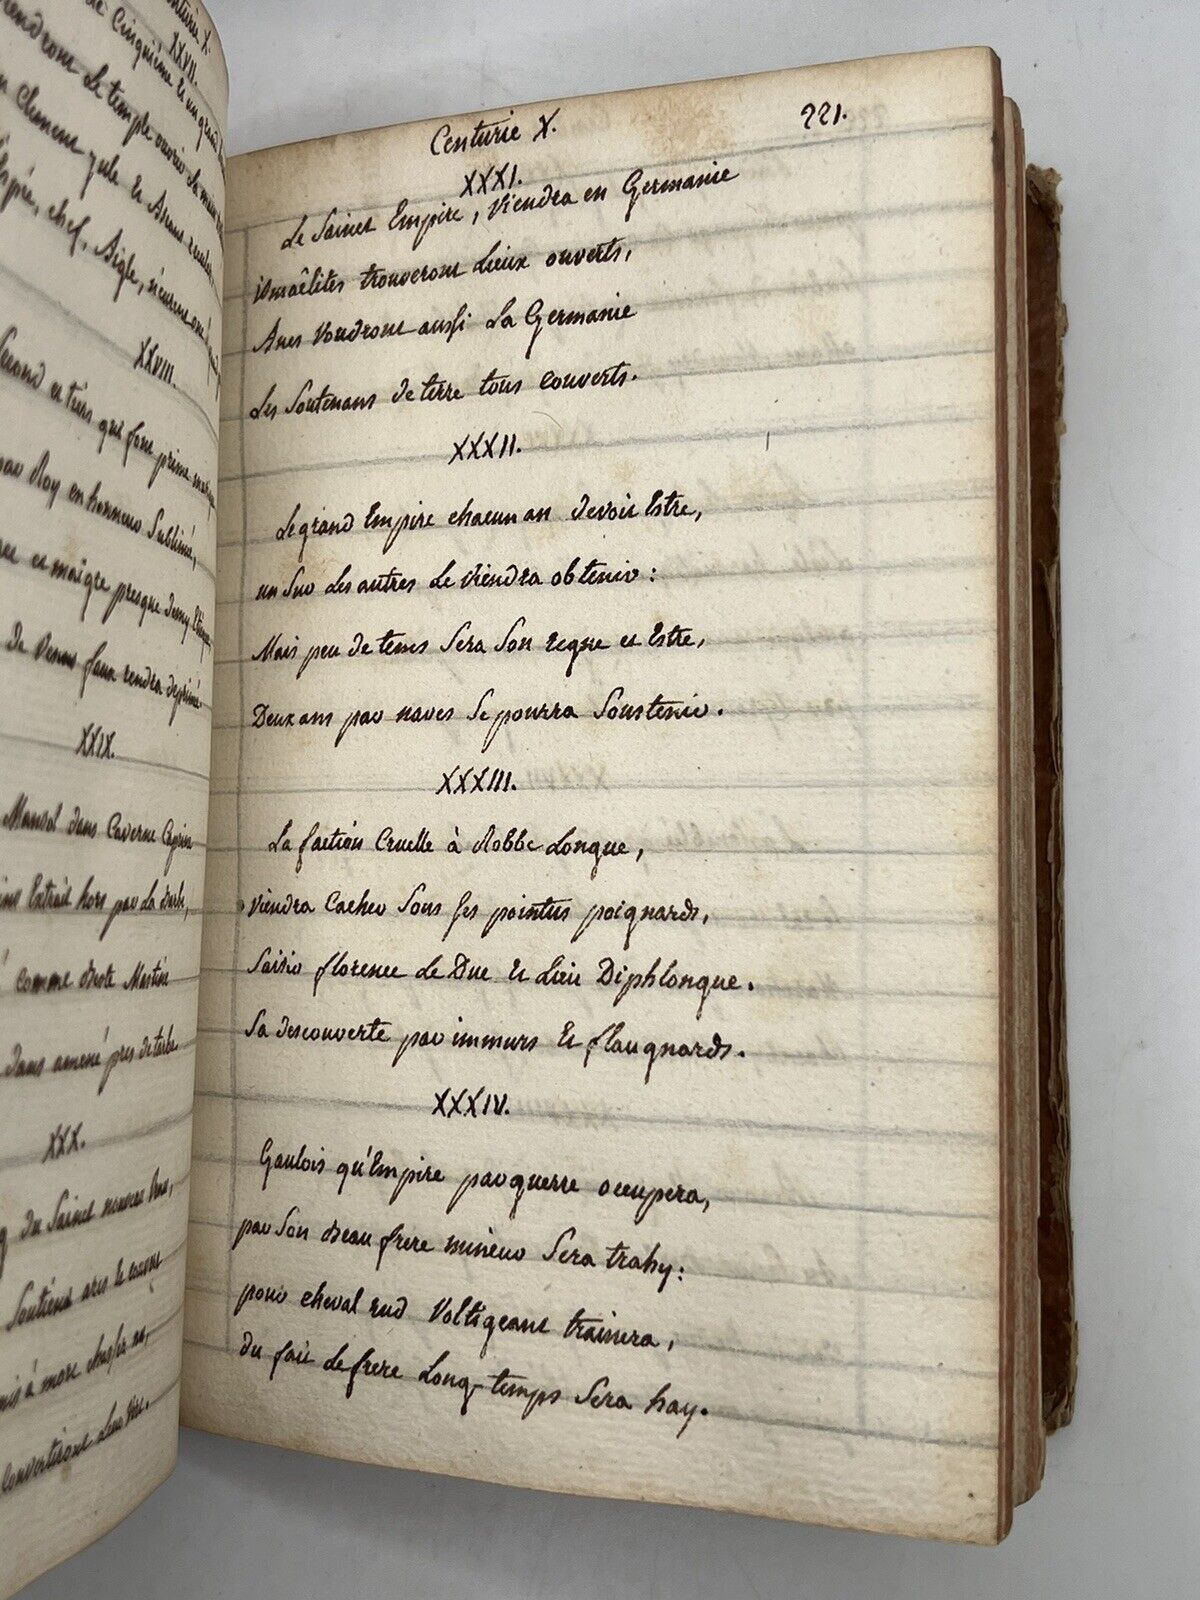 Centurie X.
XXVII.
Cinquième et un grand
le temple ouvrir de main
Clement Jule et Ascans
chef, Aigle,
XXVIII.
Second et tiers que font prime
par Roy en honneur Sublimé,
et maigre presque demy
De Venus faux rendra deprimé.
XXIX.
Mansol dans Caverne Caprine
Extrait hors par La
comme beste Mastine
dans amené pres de tarbe
XXX.
du Sainct nouveau
Soutient arcs et couvert
mis à mort
Convertiront
Centurie X.
221.
XXXI.
Le Sainct Empire, Viendra en Germanie
ismaëlites trouveront Lieux ouverts,
Anes Voudront aussi La Germanie
Les Soutenans de terre tous couverts.
XXXII.
Le grand Empire chacun an devoir Estre,
un Sur Les autres Le Viendra obtenir :
Mais peu de tems Sera Son regne et Estre,
Deux ans par naves Se pourra Soustenir.
XXXIII.
La faction Cruelle à Robbe Longue,
Viendra Cacher Sous Ses pointus poignards,
Saisir florence Le Duc et Lieu Diphlongue.
Sa descouverte par immurs et flaugnards.
XXXIV.
Gaulois qu'Empire par guerre occupera,
par Son beau frere mineur Sera trahy :
pour cheval rud Voltigeant trainera,
Du fait Le frere Long-temps Sera hay.